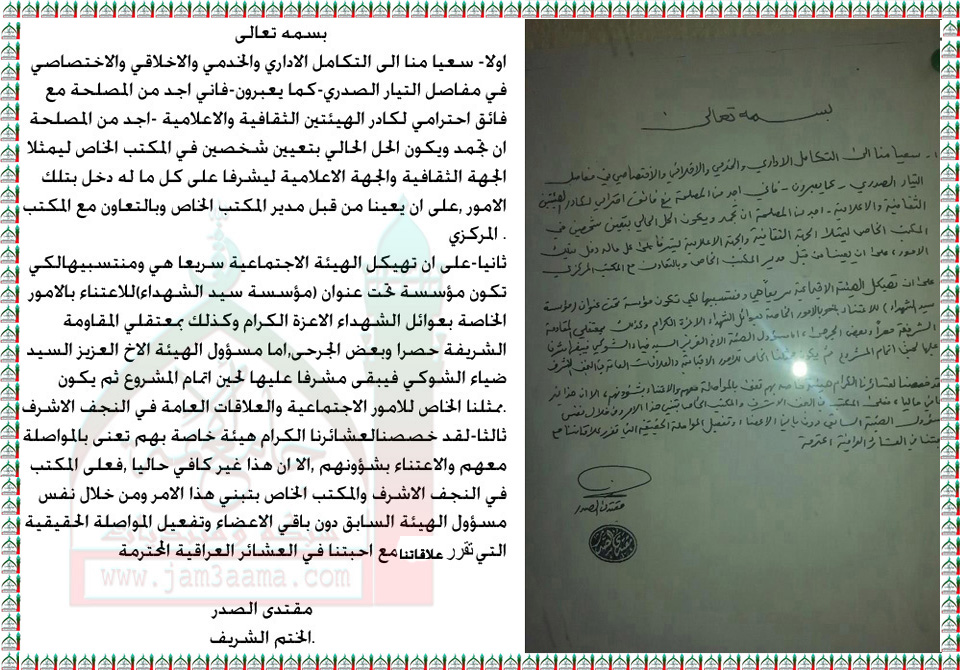 بسمه تعالى
اولا- سعيا منا الى التكامل الاداري والخدمي والاخلاقي والاختصاصي
في مفاصل التيار الصدري-كما يعبرون-فاني اجد من المصلحة مع
فائق احترامي لكادر الهيئتين الثقافية والاعلامية -اجد من المصلحة
ان تجمد ويكون الحل الحالي بتعيين شخصين في المكتب الخاص ليمثلا
الجهة الثقافية والجهة الاعلامية ليشرفا على كل ما له دخل بتلك
الامور ,على ان يعينا من قبل مدير المكتب الخاص وبالتعاون مع المكتب
المركزي .
ثانيا-على ان تهيكل الهيئة الاجتماعية سريعا هي ومنتسبيهالكي
تكون مؤسسة تحت عنوان (مؤسسة سيد الشهداء)للاعتناء بالامور
الخاصة بعوائل الشهداء الاعزة الكرام وكذلك بمعتقلي المقاومة
الشريفة حصرا وبعض الجرحى,اما مسؤول الهيئة الاخ العزيز السيد
ضياء الشوكي فيبقى مشرفا عليها لحين اتمام المشروع ثم يكون
.ممثلنا الخاص للامور الاجتماعية والعلاقات العامة في النجف الاشرف
ثالثا-لقد خصصنالعشائرنا الكرام هيئة خاصة بهم تعنى بالمواصلة
معهم والاعتناء بشؤونهم ,الا ان هذا غير كافي حاليا ,فعلى المكتب
في النجف الاشرف والمكتب الخاص بتبني هذا الامر ومن خلال نفس
مسؤول الهيئة السابق دون باقي الاعضاء وتفعيل المواصلة الحقيقية
التي تقرر علاقاتنا مع احبتنا في العشائر العراقية المحترمة
www.jam3aama.com
مقتدى الصدر
.الختم الشريف
بسمه تعالى
١- سعيا منا الى التكامل الاداري والخدمي والاخلاقي والاختصاصي في مفاصل
التيار الصدري - كما يعبرون - فاني اجد من المصلحة مع فائق احترامي لكادر الهيئتين
الثقافية والاعلامية - اجد من المصلحة ان تجمد ويكون الحل الحالي بتعيين شخصين في
المكتب الخاص ليمثلا الجهة الثقافية والجهة الاعلامية ليشرفا على كل ماله دخل بتلك
الامور، على ان يعينا من قبل مدير المكتب الخاص وبالتعاون مع المكتب المركزي
على ان تهيكل الهيئة الاجتماعية سريعا هي ومنتسبيها لكي تكون مؤسسة تحت عنوان (مؤسسة
سيد الشهداء) للاعتناء بالامور الخاصة بعوائل الشهداء الاعزة الكرام وكذلك بمعتقلي المقاومة
الشريفة حصرا وبعض الجرحى، اما مسؤول الهيئة الاخ العزيز السيد ضياء الشوكي فيبقى مشرفا
عليها لحين اتمام المشروع ثم يكون ممثلنا الخاص للامور الاجتماعية والعلاقات العامة في النجف الاشرف
لقد خصصنا لعشائرنا الكرام هيئة خاصة بهم تعنى بالمواصلة معهم والاعتناء بشؤونهم، الا ان هذا غير
كافي حاليا، فعلى المكتب في النجف الاشرف والمكتب الخاص بتبني هذا الامر ومن خلال نفس
مسؤول الهيئة السابق دون باقي الاعضاء وتفعيل المواصلة الحقيقية التي تقرر علاقاتنا مع
احبتنا في العشائر العراقية المحترمة
مقتدى الصدر